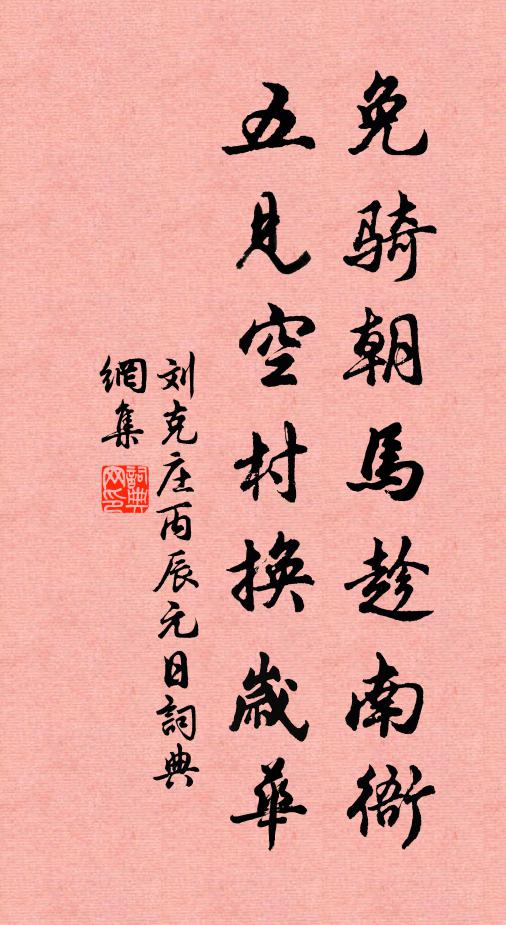 免骑朝馬趁南衙
五見空村换歲華
刘克庄丙辰元日詞典
網集
詞典网印